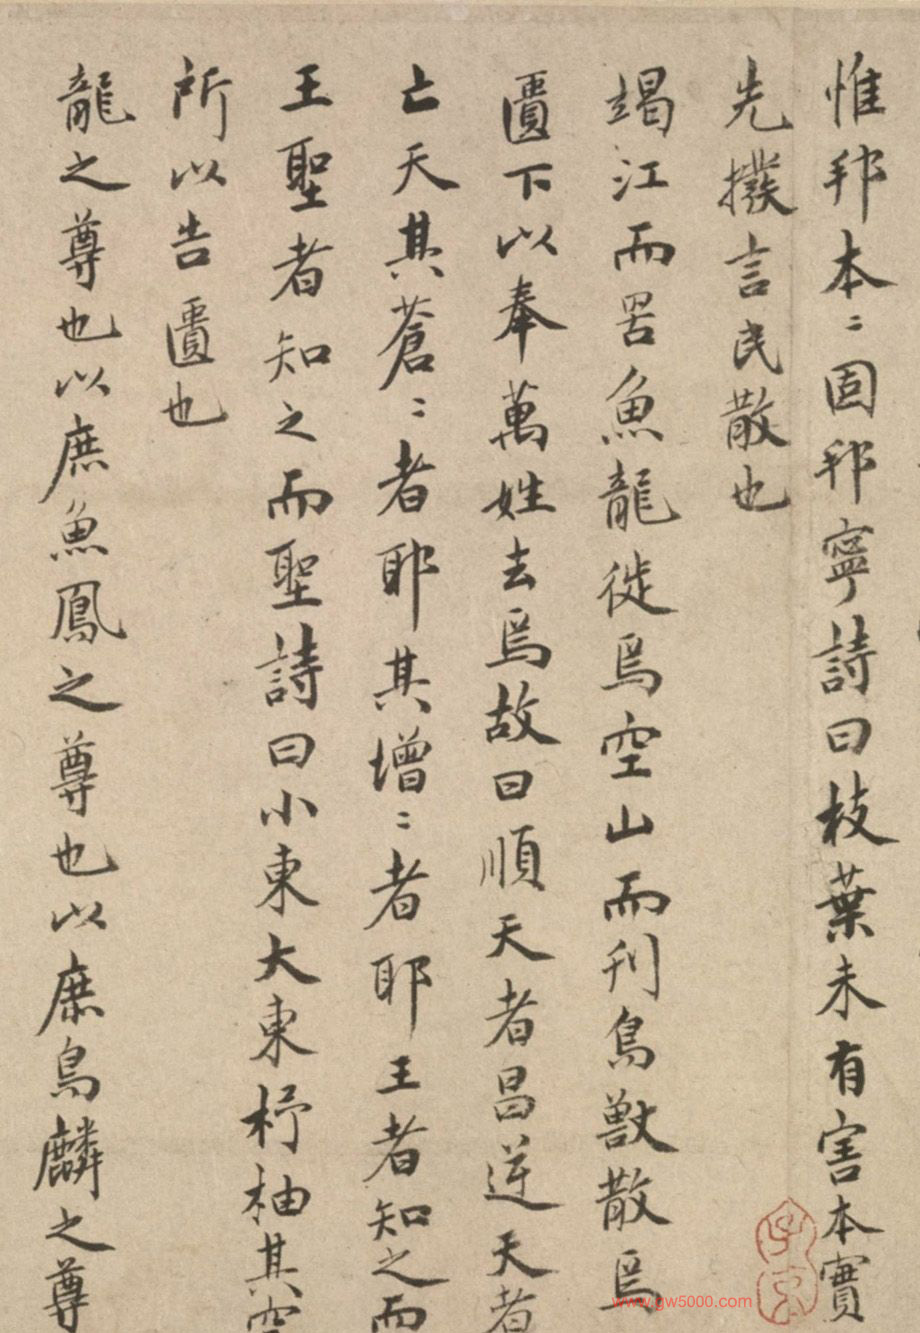 惟邦本〻固邦寧詩曰枝葉未有害本實
先撥言民散也
竭江而罟魚龍徙焉空山而刋鳥獸散焉
匱下以奉萬姓去焉故曰順天者昌逆天者
亡天其蒼〻者耶其增〻者耶王者知之而
王聖者知之而聖詩曰小東大東杼柚其空
所以告匱也
龍之尊也以庶魚鳳之尊也以庶鳥麟之尊
www.gw5000.com